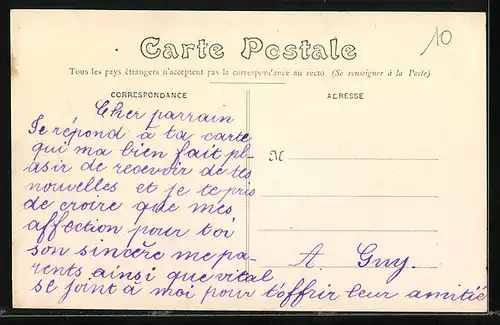 10
Carte Postale
Tous les pays étrangers n'acceptent pas la correspondance au recto (Se renseigner à la Poste)
CORRESPONDANCE
ADRESSE
Cher parrain
Je répond à ta carte
qui ma bien fait pl-
asir de recevoir de tes
nouvelles et je te prie
de croire que mes
affection pour toi
son sincère me pa-
rents ainsi que vital
se joint à moi pour t'offrir leur amitié
M
A Guy.